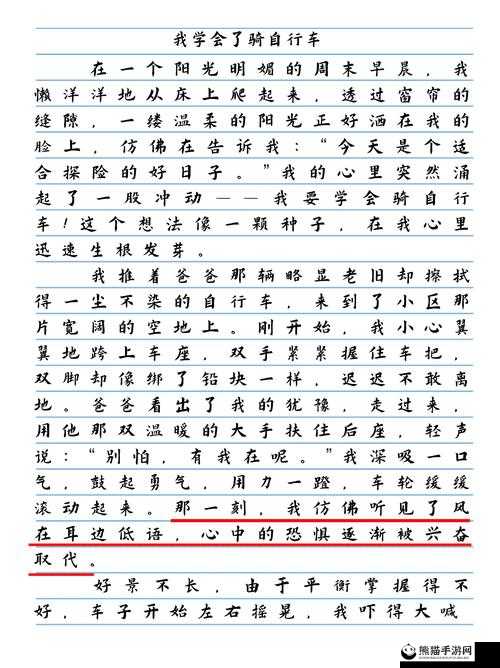 我学会了骑自行车
在一个阳光明媚的周末早晨，我
懒洋洋地从床上爬起来，透过窗帘的
缝隙，一缕温柔的阳光正好洒在我的
脸上，仿佛在告诉我：“今天是个适
合探险的好日子。”我的心里突然涌
起了一股冲动——我要学会骑自行
车！这个想法像一颗种子，在我心里
迅速生根发芽。
我推着爸爸那辆略显老旧却擦拭
得一尘不染的自行车，来到了小区那
片宽阔的空地上。刚开始，我小心翼
翼地跨上车座，双手紧紧握住车把，
双脚却像绑了铅块一样，迟迟不敢离
地。爸爸看出了我的犹豫，走过来，
用他那双温暖的大手扶住后座，轻声
说：“别怕，有我在呢。”我深吸一口
气，鼓起勇气，用力一蹬，车轮缓缓
滚动起来。那一刻，我仿佛听见了风
在耳边低语，心中的恐惧逐渐被兴奋
取代。
好景不长，由于平衡掌握得不
好，车子开始左右摇晃，我吓得大喊
熊猫手游网